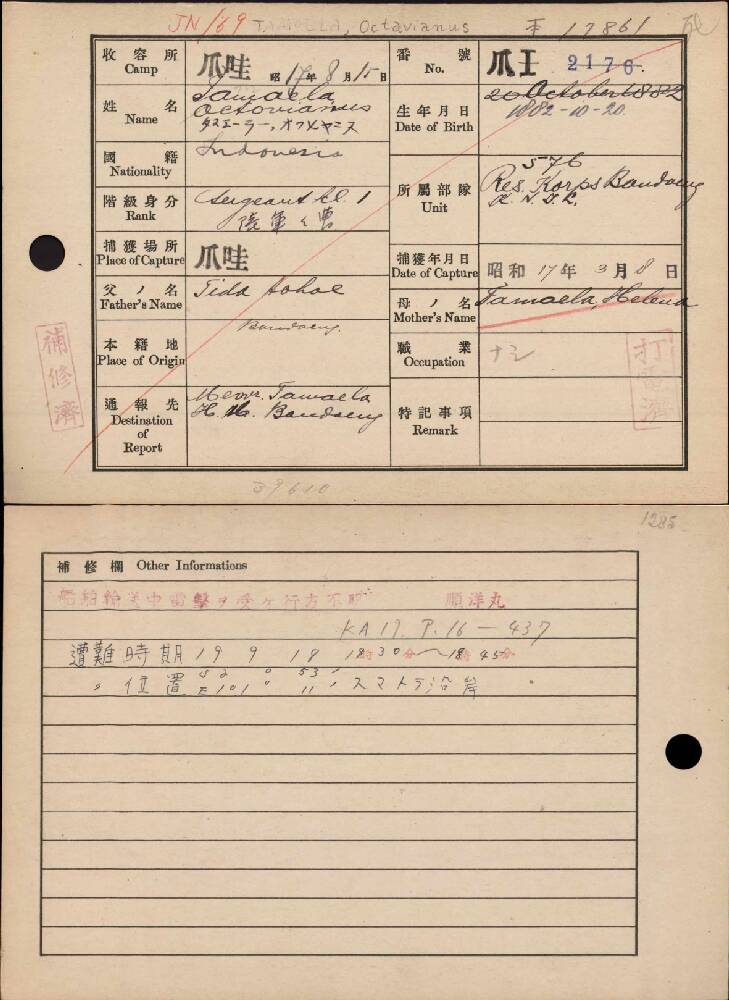 JN/69 TAMAELA, Octavianus 17861
收容所 Camp 爪哇 昭17年8月15日
番號 No. 爪王 2176.
姓名 Name Tamaela Octovianus
タマエーラー、オクタヒヤーヌス
生年月日 Date of Birth 20 October 1882
1882-10-20
國籍 Nationality Indonesia
階級身分 Rank Sergeant kl. 1
陸軍
所屬部隊 Unit 576
Res. Korps Bandoeng
K.N.I.L.
捕獲場所 Place of Capture 爪哇
捕獲年月日 Date of Capture 昭和17年3月8日
父ノ名 Father's Name Tida
母ノ名 Mother's Name Tamaela, Helena
本籍地 Place of Origin Bandoeng.
職業 Occupation ナシ
通報先 Destination of Report Mevr. Tamaela
Bandoeng
特記事項 Remark
補修濟
打電濟
39610
1285
補修欄 Other Informations
船舶輸送中雷擊ヲ受ケ行方不明 順洋丸
KA 17. P. 16 - 437
遭難時期 19 9 18 18時30分〜18時45分
〃 位置 S 2° 53′
E 101° 11′ スマトラ沿岸